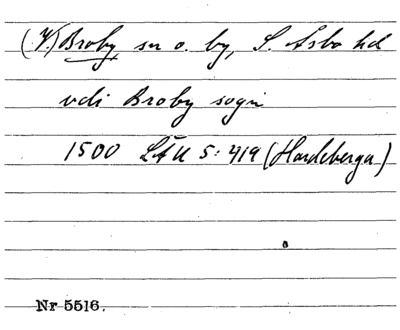 (V.) Broby, sn o. by, S. Åsbo hd
vdi Broby sogn
1500 LÅU 5: 419 (Hardeberga)
Nr 5516.